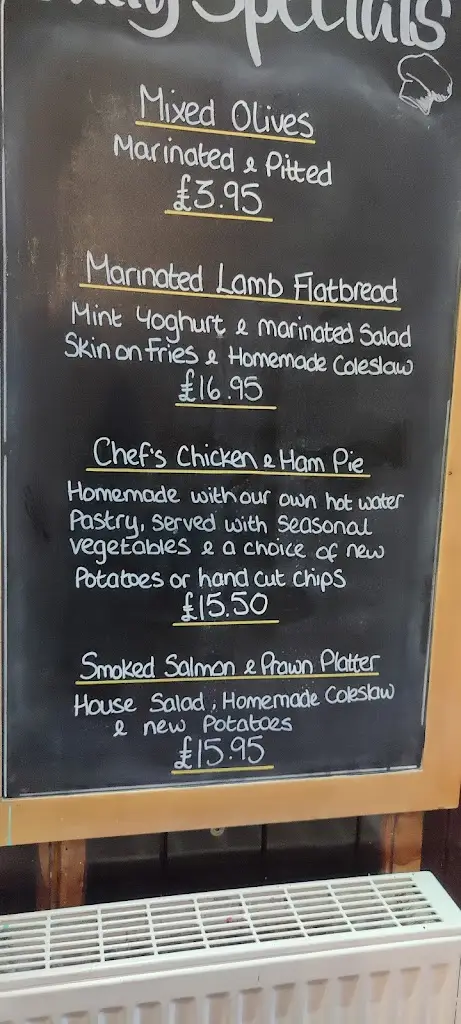 Specials
Mixed Olives
Marinated & Pitted
£3.95
Marinated Lamb Flatbread
Mint Yoghurt & marinated Salad
Skin on Fries & Homemade Coleslaw
£16.95
Chef's Chicken & Ham Pie
Homemade with our own hot water
Pastry, served with seasonal
vegetables & a choice of new
Potatoes or hand cut chips
£15.50
Smoked Salmon & Prawn Platter
House Salad, Homemade Coleslaw
& new Potatoes
£15.95